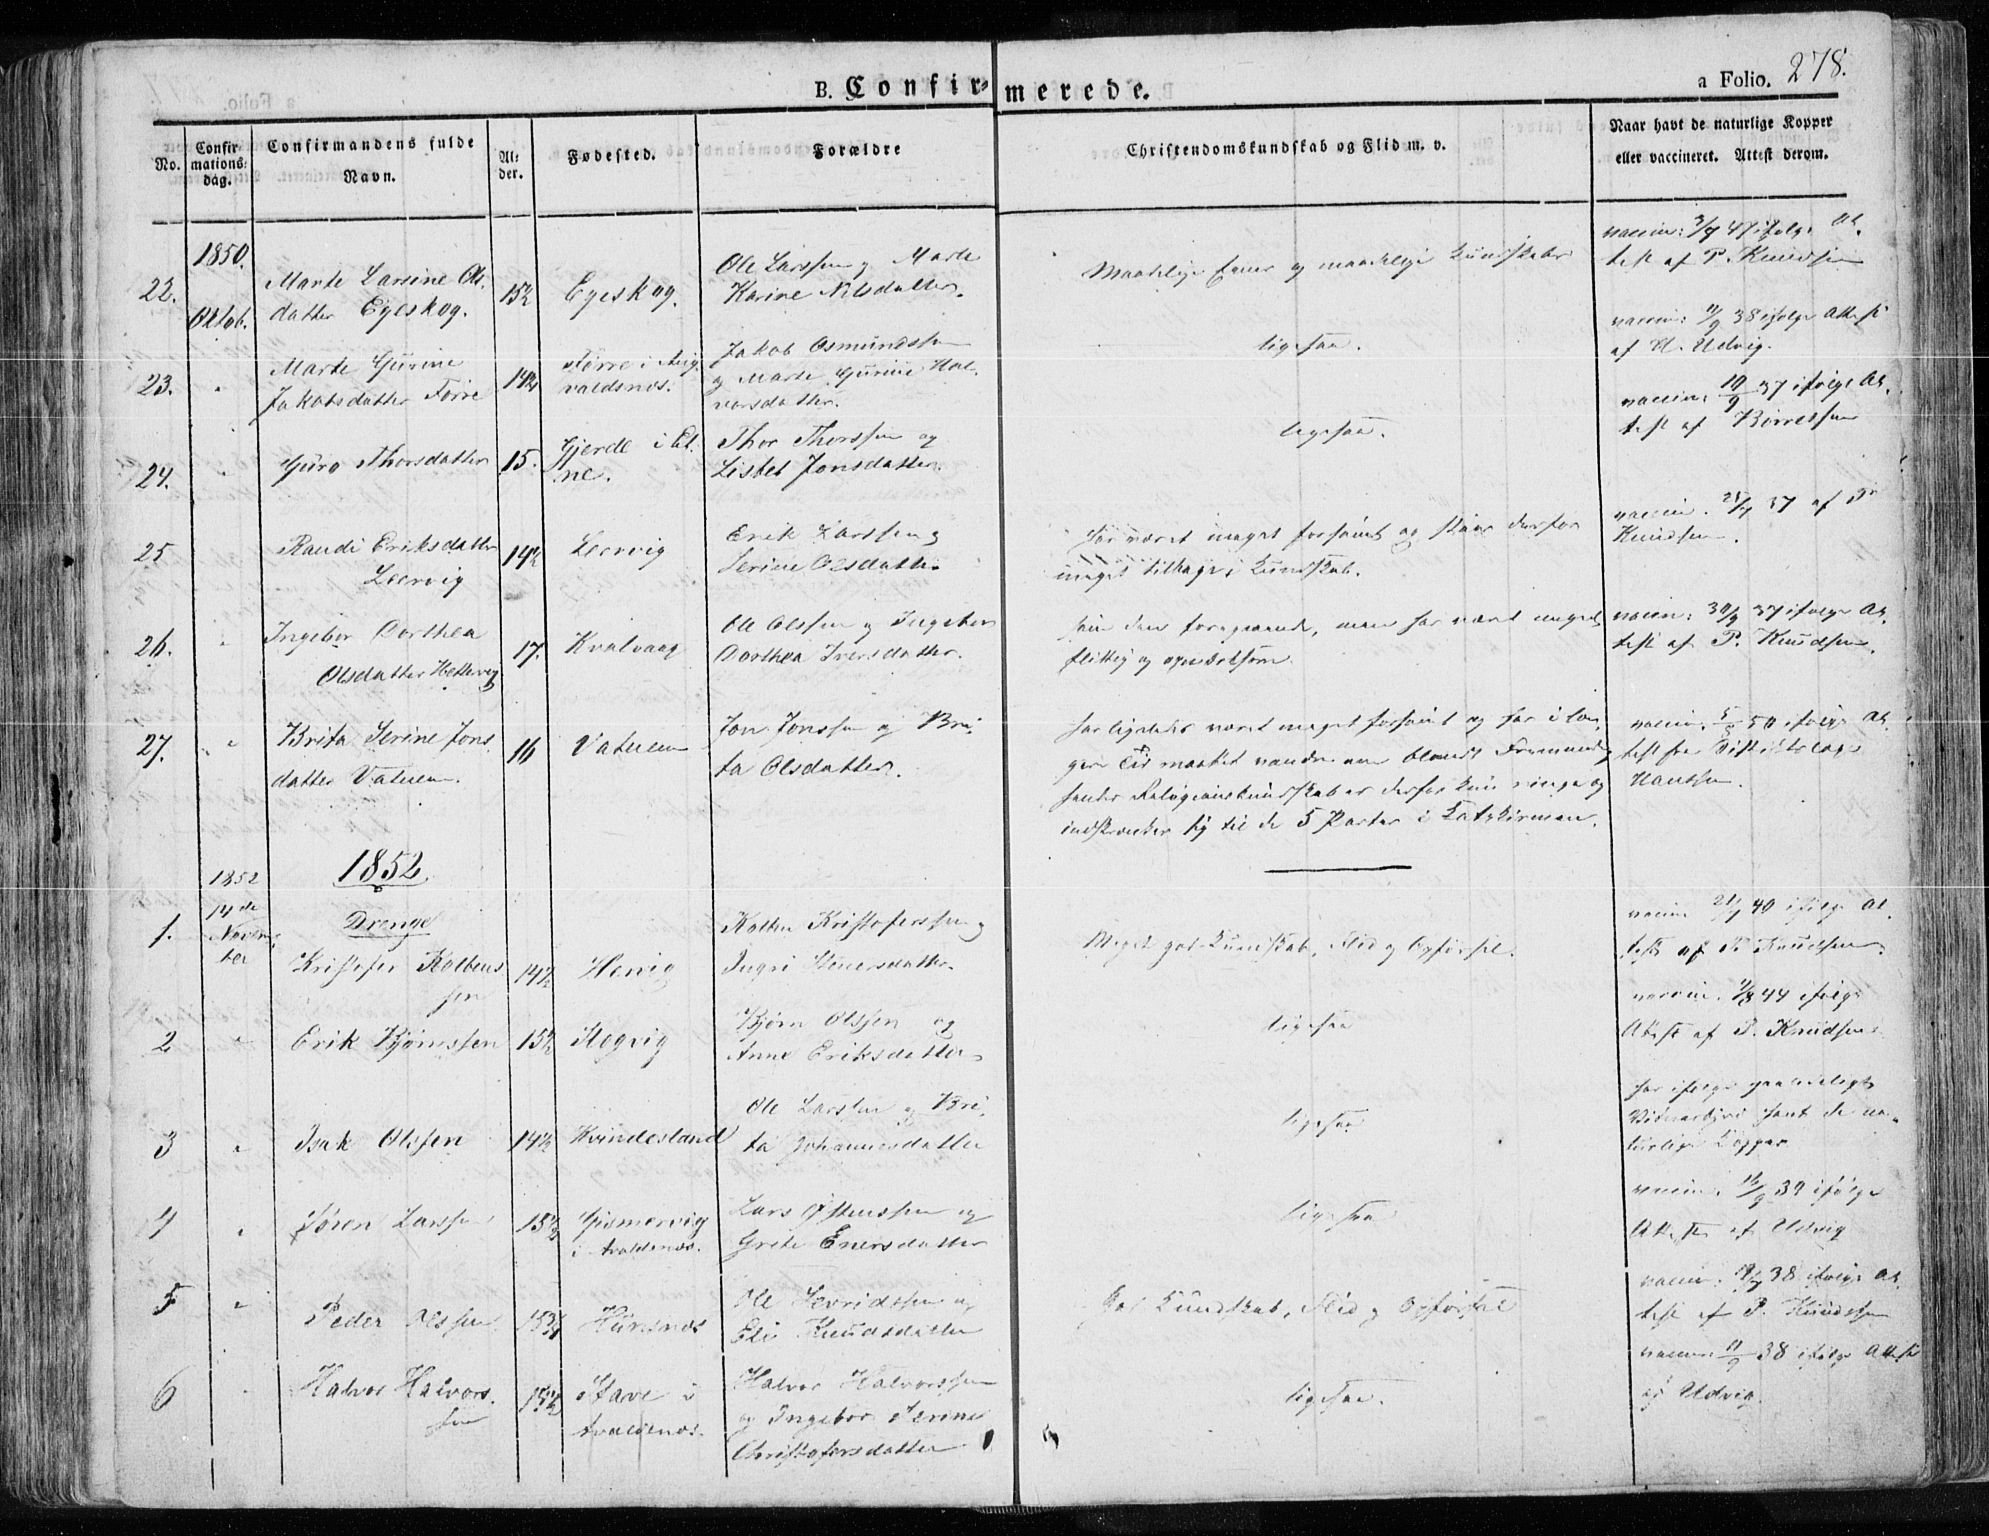 B. Confirmerede.
a Folio. 278.
No.
Confirmations dag.
Confirmandens fulde Navn.
Alder.
Fødested.
Forældre
Christendomskundskab og Flid m. v.
Naar havt de naturlige Kopper eller vaccineret. Attest derom.
1850.
Oktob.
22. Marte Larsine Ols-
datter Egeskog.
15½
Egeskog.
Ole Larssen og Marte
Karine Nilsdatter.
Maadelige Evner og maadelige Kundskaber
vaccin: 3/7 47 ifølge At-
test af P. Knudsen
23. " Marte Gurine
Jakobsdatter Førre
14½
Førre i Aug-
valdsnes.
Jakob Osmundssen
og Marte Gurine Hal-
vorsdatter.
ligesaa.
vaccin: 11/9 38 ifølge Attest
af U. Udvig.
24. " Guro Thorsdatter
15.
Gjerde i Et-
ne.
Thor Thorssen og
Lisbet Jonsdatter.
ligesaa.
vaccin. 10/9 37 ifølge At-
test af Børretsen
25 Randi Eriksdatter
Leervig
14½
Leervig
Erik Larssen og
Serine Olsdatter
Har været meget forsømt og staar derfor
meget tilbage i Kundskab.
vaccin. 37 af P.
Knudsen.
26. " Ingebor Dorthea
Olsdatter Hettervig
17.
Kvalvaag
Ole Olssen og Ingebor
Dorthea Iversdatter.
som den foregaaende, men har været meget
flittig og opmærksom.
vaccin: 30/9 37 ifølge At-
test af P. Knudsen.
27. " Brita Serine Jons-
datter Vateem.
16
Vateem
Jon Jonssen og Bri-
ta Olsdatter.
Har ligeledes været meget forsømt og har i læn-
gere Tid maattet vandre om blandt Fremmede,
hendes Religionskundskab er derfor kun ringe og
indskrænker sig til de 5 Parter i Katekismen.
vaccin. 5/8 50 ifølge At-
test fra Distriktslæge
Hanssen.
1852.
1852
14de
Novem-
ber
Drenge
1. Kristofer Kolbens-
sen
14½
Hervig
Kolben Kristoferssen og
Ingri Einersdatter
Meget god Kundskab, Flid og Opførsel.
vaccin. 21/7 40 ifølge At-
test af P. Knudsen
2 " Erik Bjørnssen
15½
Høgvig
Bjørn Olssen og
Anne Eriksdatter
ligesaa
vaccin. 1/8 44 ifølge
Attest af P. Knudsen
3 " Isak Olssen
14½
Kvindesland
Ole Larssen og Bri-
ta Johannesdatter
ligesaa
har ifølge paalideligt
Vidnesbyrd havt de na-
turlige Kopper
4 " Søren Larssen
15½
Gismervig
i Avaldsnes.
Lars Østenssen og
Grete Enersdatter
ligesaa
vaccin. 16/9 39 ifølge
Attest af Udvig
5 " Peder Olssen
15¾
Hunsnes
Ole Sevridssen og
Eli Knudsdatter
God Kundskab, Flid og Opførsel
vaccin. 38 ifølge At-
test af P. Knudssen
6 " Halvor Halvors-
sen
15½
Stave i
Avaldsnes.
Halvor Halvorssen
og Ingebor Serine
Christofersdatter
ligesaa.
vaccin 11/9 38 ifølge Attest
af Udvig.